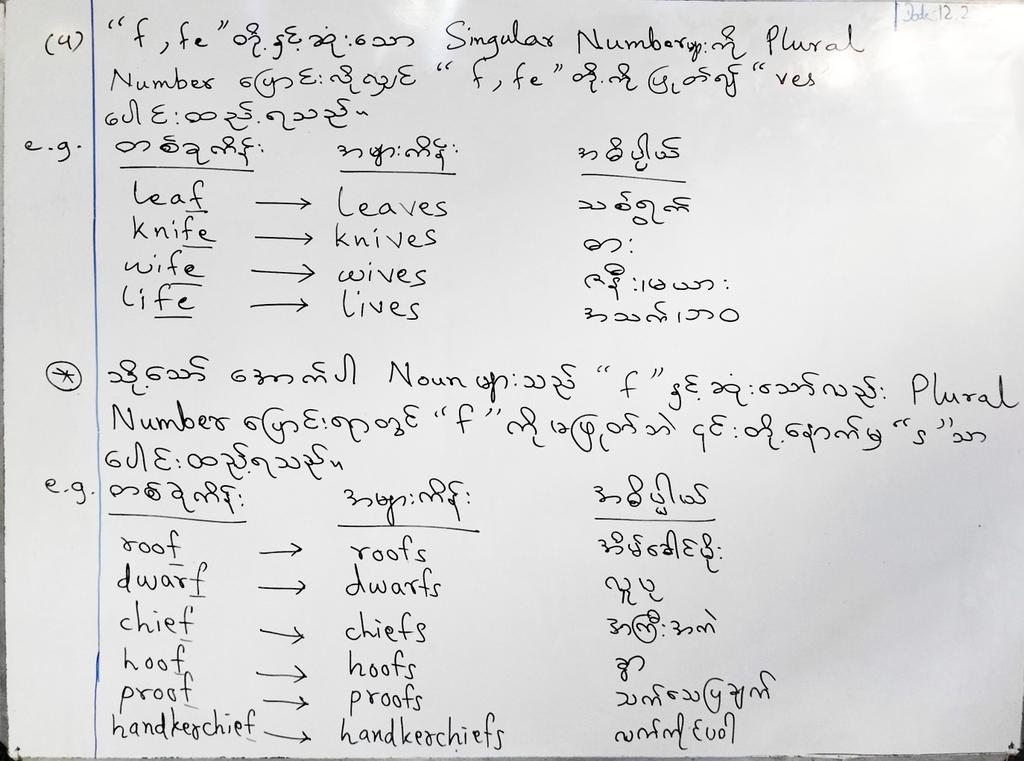 Date-12.2
(၄) “f, fe” တို့နှင့်ဆုံးသော Singular Numberများကို Plural
Number ပြောင်းလိုလျှင် “f, fe” တို့ကို ဖြုတ်၍ “ves
ပေါင်းထည့်ရသည်။
e.g. တစ်ခုကိန်း အများကိန်း အဓိပ္ပါယ်
leaf → leaves သစ်ရွက်
knife → knives ဓား
wife → wives ဇနီး၊မယား
life → lives အသက်၊ဘဝ
* သို့သော် အောက်ပါ Noun များသည် “f” နှင့်ဆုံးသော်လည်း Plural
Number ပြောင်းရာတွင် “f” ကို မဖြုတ်ဘဲ ၎င်းတို့နောက်မှ “s” သာ
ပေါင်းထည့်ရသည်။
e.g. တစ်ခုကိန်း အများကိန်း အဓိပ္ပါယ်
roof → roofs အိမ်ခေါင်မိုး
dwarf → dwarfs လူပု
chief → chiefs အကြီးအကဲ
hoof → hoofs ခွာ
proof → proofs သက်သေပြချက်
handkerchief → handkerchiefs လက်ကိုင်ပဝါ